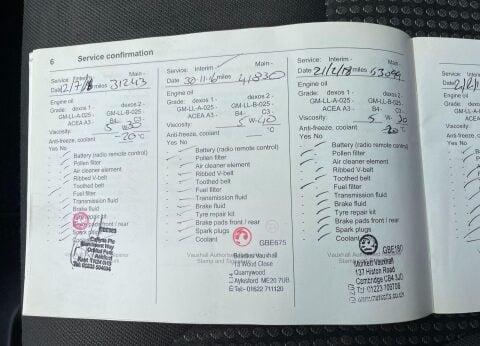 6 Service confirmation
Service: Interim - Main -
Date miles 31243
Engine oil
Grade: dexos 1 - dexos 2 -
GM-LL-A-025 - GM-LL-B-025 -
ACEA A3 - B4 - C3 -
Viscosity: 5 W30
Anti-freeze, coolant -20°C
Yes No
Battery (radio remote control)
Pollen filter
Air cleaner element
Ribbed V-belt
Toothed belt
Fuel filter
Transmission fluid
Brake fluid
Tyre repair kit
Brake pads front / rear
Spark plugs
Coolant
Service: Interim - Main -
Date 30-11-16 miles 41830
Engine oil
Grade: dexos 1 - dexos 2 -
GM-LL-A-025 - GM-LL-B-025 -
ACEA A3 - B4 - C3 -
Viscosity: 5 W-40
Anti-freeze, coolant °C
Yes No
Battery (radio remote control)
Pollen filter
Air cleaner element
Ribbed V-belt
Toothed belt
Fuel filter
Transmission fluid
Brake fluid
Tyre repair kit
Brake pads front / rear
Spark plugs
Coolant
GBE675
Vauxhall
Wood Close
Quarrywood
Aylesford ME20 7UB
Tel:- 01622 711120
Service: Interim - Main -
Date 21/2/18 miles 53099
Engine oil
Grade: dexos 1 - dexos 2 -
GM-LL-A-025 - GM-LL-B-025 -
ACEA A3 - B4 - C3 -
Viscosity: 5 W- 30
Anti-freeze, coolant -20°C
Yes No
Battery (radio remote control)
Pollen filter
Air cleaner element
Ribbed V-belt
Toothed belt
Fuel filter
Transmission fluid
Brake fluid
Tyre repair kit
Brake pads front / rear
Spark plugs
Coolant
GBE180
Vauxhall
137 Histon Road
Cambridge CB4 3JD